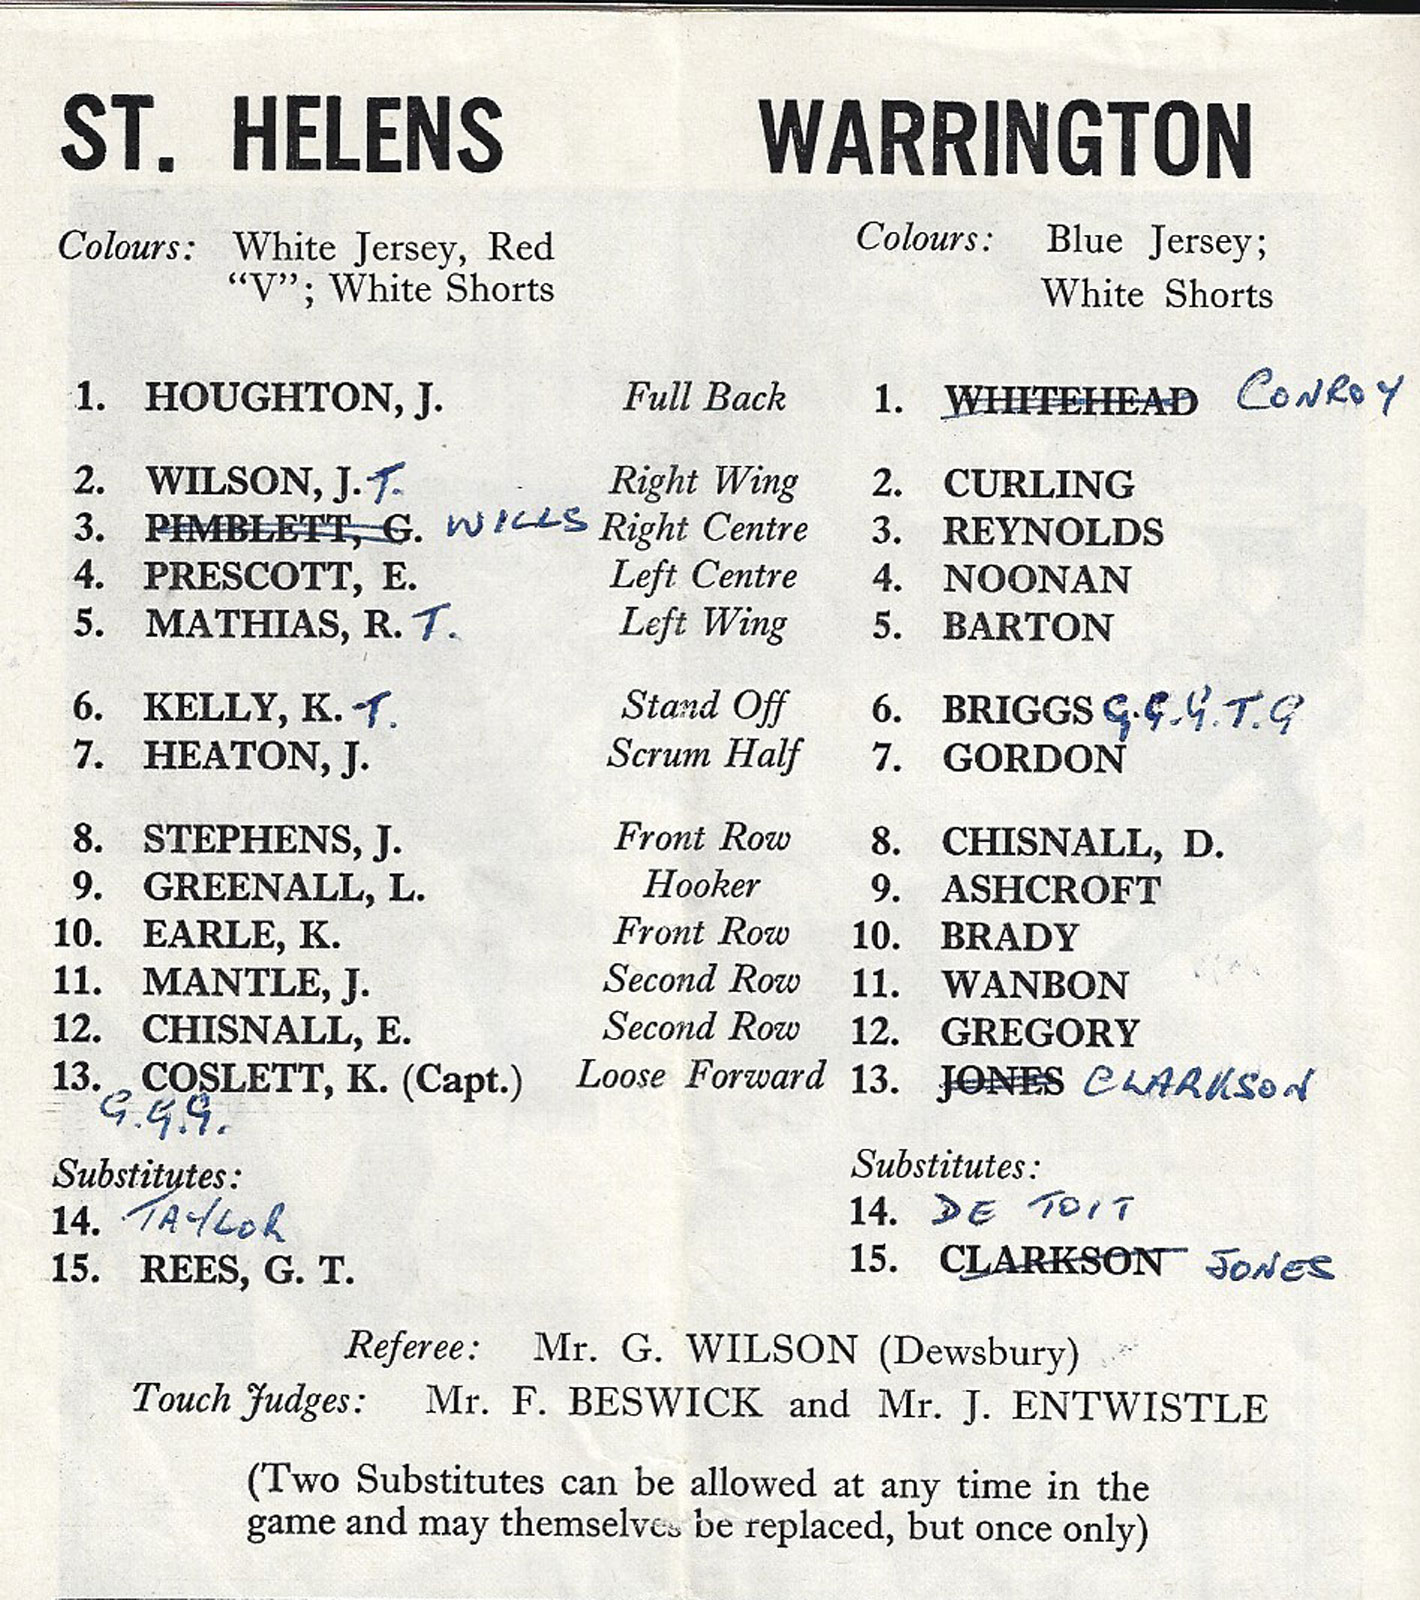 ST. HELENS WARRINGTON
Colours: White Jersey, Red Colours: Blue Jersey;
"V"; White Shorts White Shorts
1. HOUGHTON, J. Full Back 1. WHITEHEAD CONROY
2. WILSON, J. T. Right Wing 2. CURLING
3. PIMBLETT, G. WILLS Right Centre 3. REYNOLDS
4. PRESCOTT, E. Left Centre 4. NOONAN
5. MATHIAS, R. T. Left Wing 5. BARTON
6. KELLY, K. T. Stand Off 6. BRIGGS G.G.G.T.G
7. HEATON, J. Scrum Half 7. GORDON
8. STEPHENS, J. Front Row 8. CHISNALL, D.
9. GREENALL, L. Hooker 9. ASHCROFT
10. EARLE, K. Front Row 10. BRADY
11. MANTLE, J. Second Row 11. WANBON
12. CHISNALL, E. Second Row 12. GREGORY
13. COSLETT, K. (Capt.) Loose Forward 13. JONES CLARKSON
G.G.G.
Substitutes: Substitutes:
14. TAYLOR 14. DE TOIT
15. REES, G. T. 15. CLARKSON JONES
Referee: Mr. G. WILSON (Dewsbury)
Touch Judges: Mr. F. BESWICK and Mr. J. ENTWISTLE
(Two Substitutes can be allowed at any time in the
game and may themselves be replaced, but once only)